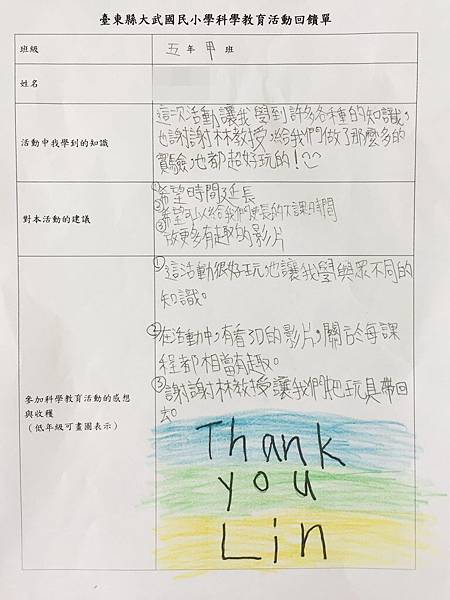 臺東縣大武國民小學科學教育活動回饋單
班級
五 年 甲 班
姓名
活動中我學到的知識
這次活動讓我學到許多各種的知識,
也謝謝林教授,給我們做了那麼多的
實驗,也都超好玩的!
對本活動的建議
①希望時間延長
②希望可以給我們更長的下課時間
③放更多有趣的影片
參加科學教育活動的感想
與收穫
(低年級可畫圖表示)
①這活動很好玩,也讓我學與眾不同的
知識。
②在活動中,有看3D的影片,關於每課
程都相當有趣。
③謝謝林教授讓我們把玩具帶回
去。
Thank
you
Lin